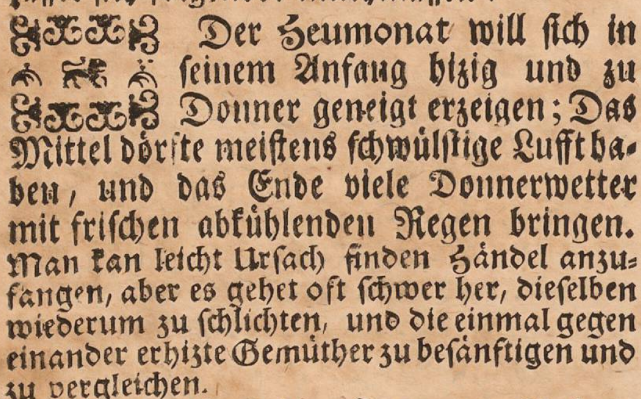 Der Heumonat will sich in
seinem Anfang hizig und zu
Donner geneigt erzeigen; Das
Mittel dörfte meistens schwülstige Lufft ha-
ben, und das Ende viele Donnerwetter
mit frischen abkühlenden Regen bringen.
Man kan leicht Ursach finden Händel anzu-
fangen, aber es gehet oft schwer her, dieselben
wiederum zu schlichten, und die einmal gegen
einander erhizte Gemüther zu besänftigen und
zu vergleichen.